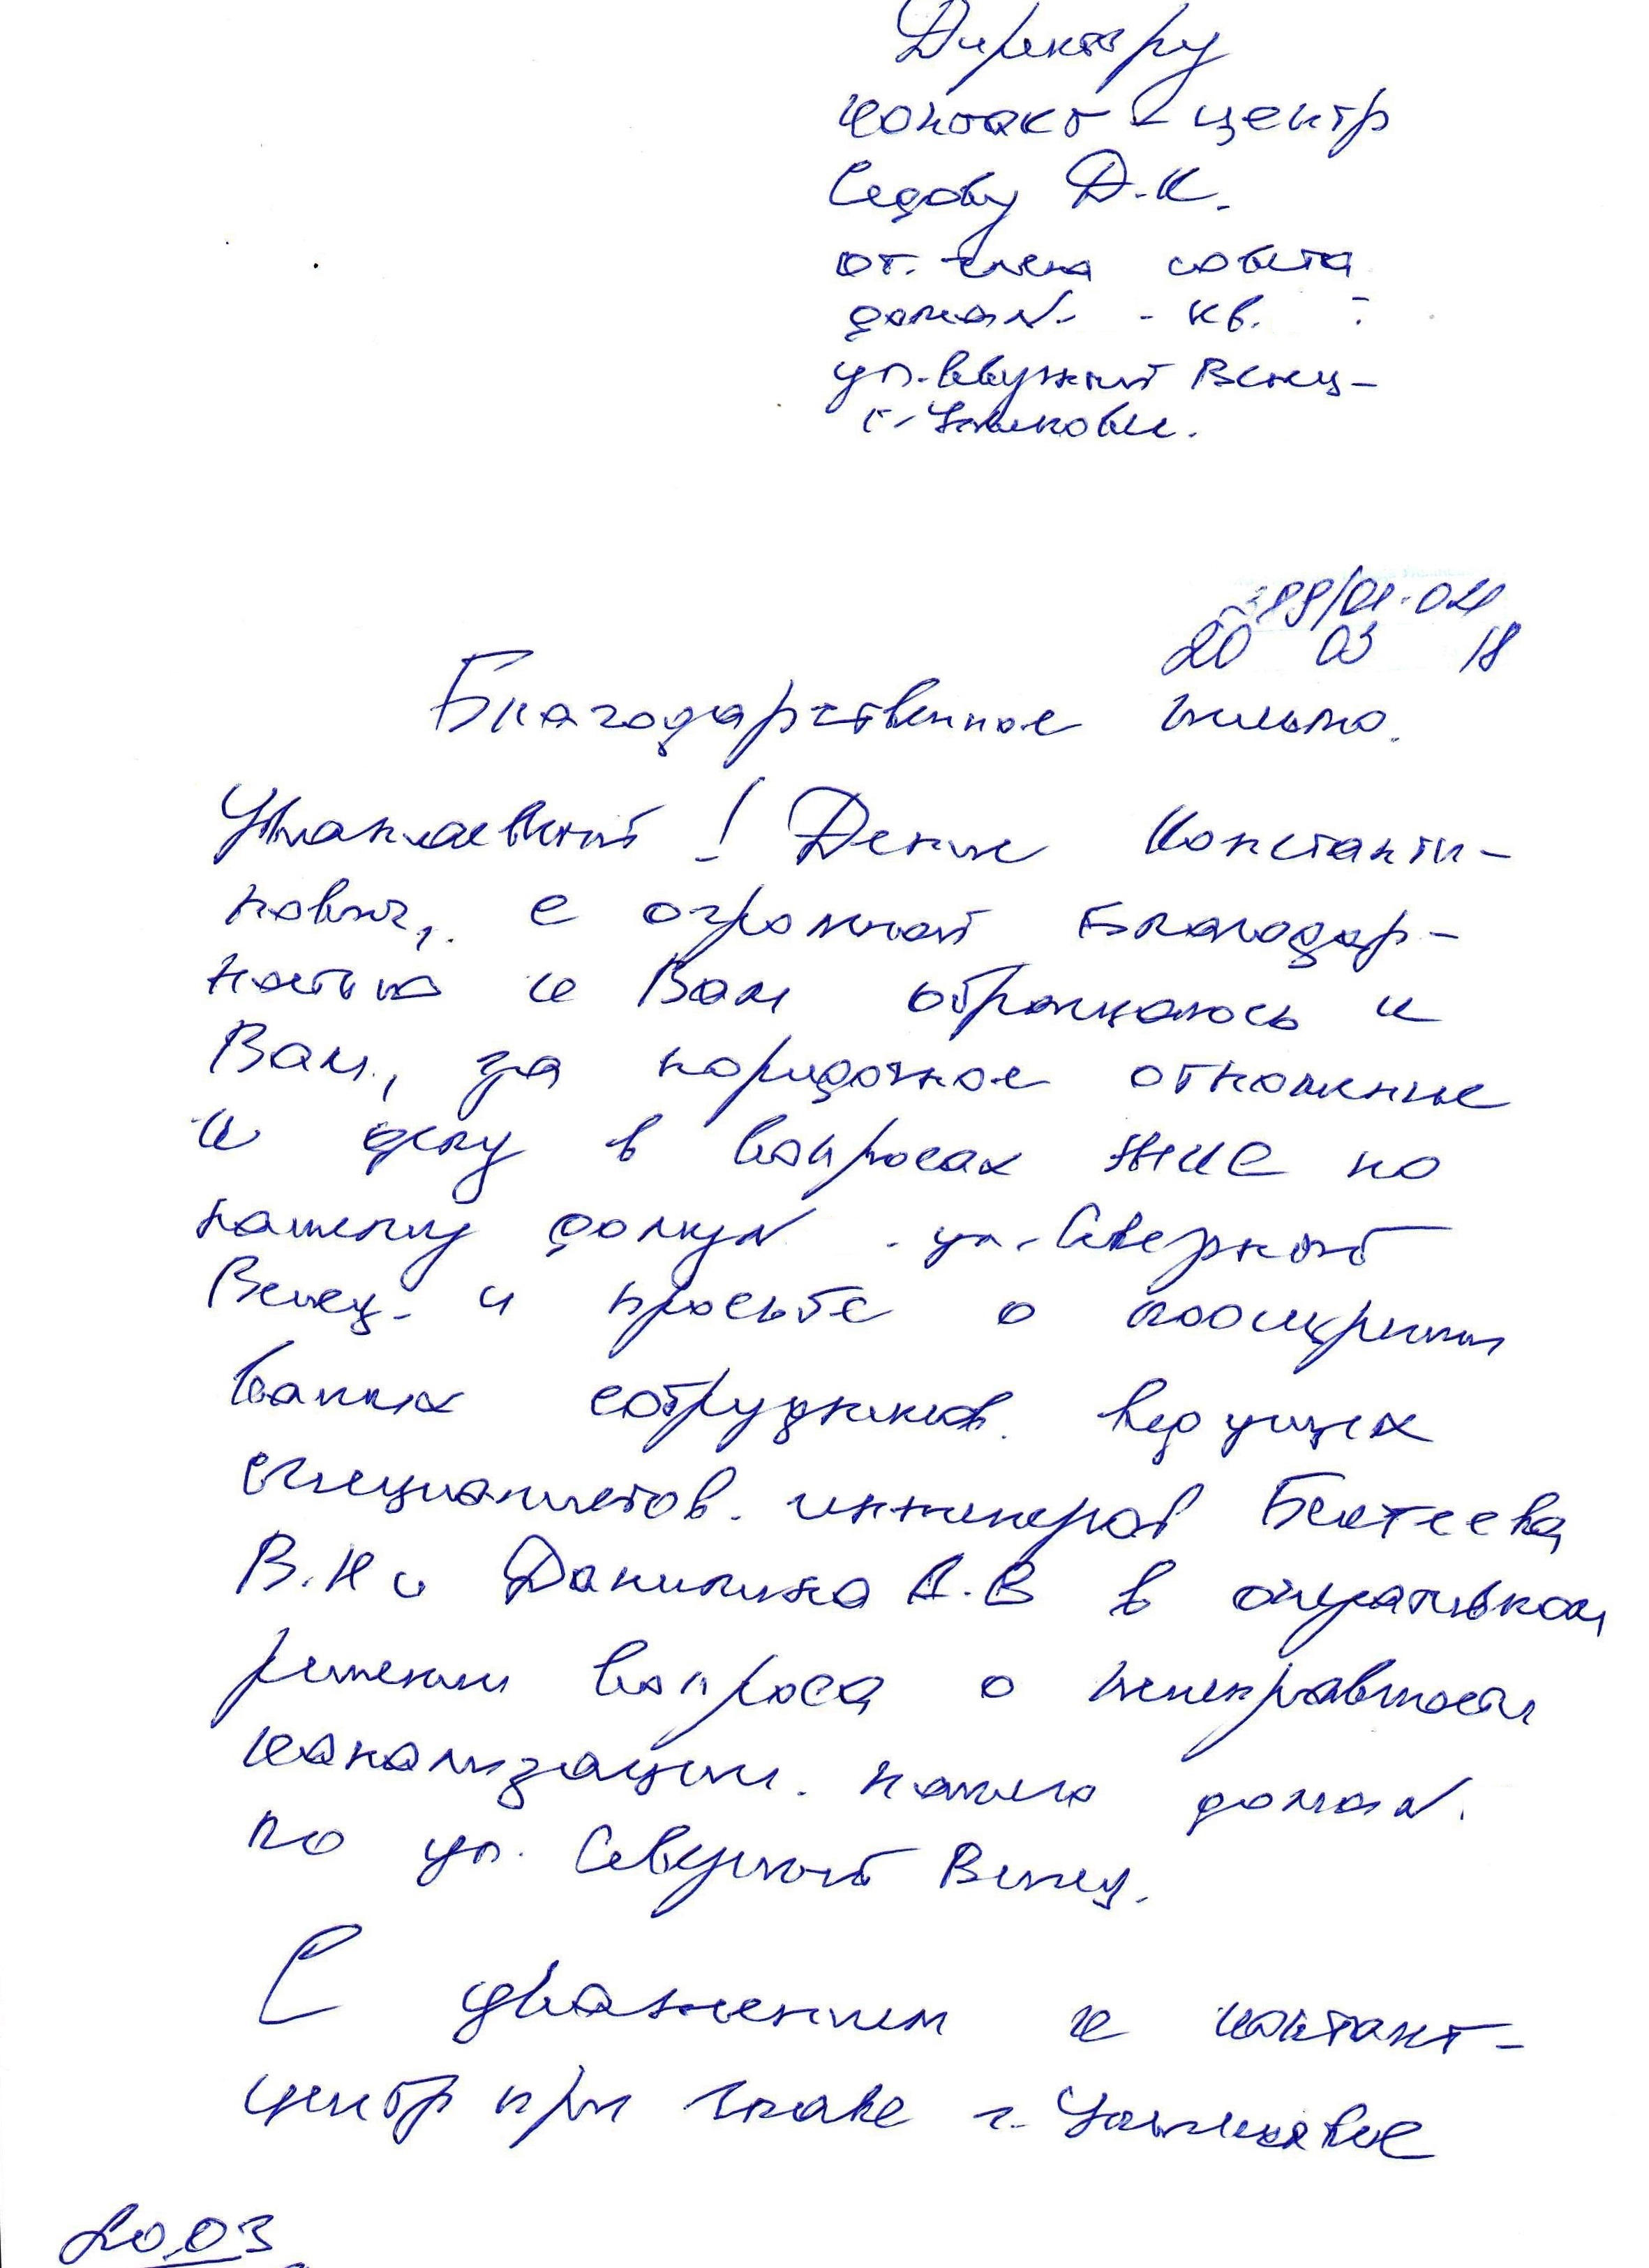 Директору
контакт-центр
Седову Д.К.
от. члена совета
дома №  - кв.
ул. Северный Венец
г. Ульяновск.
399/01-04
20 03 18
Благодарственное письмо.
Уважаемый! Денис Константи-
нович, с огромной благодар-
ностью к Вам обращаюсь к
Вам, за порядочное отношение
к делу в вопросах ЖКС по
нашему дому № . ул. Северный
Венец. и просьбе о поощрении
ваших сотрудников. ведущих
специалистов. инженеров Бектеева
В.Н и Данилина А.В в оперативном
решении вопроса о неисправности
канализации. нашего дома №.
по ул. Северный Венец.
С уважением к контакт-
центр при главе г. Ульяновске
20.03